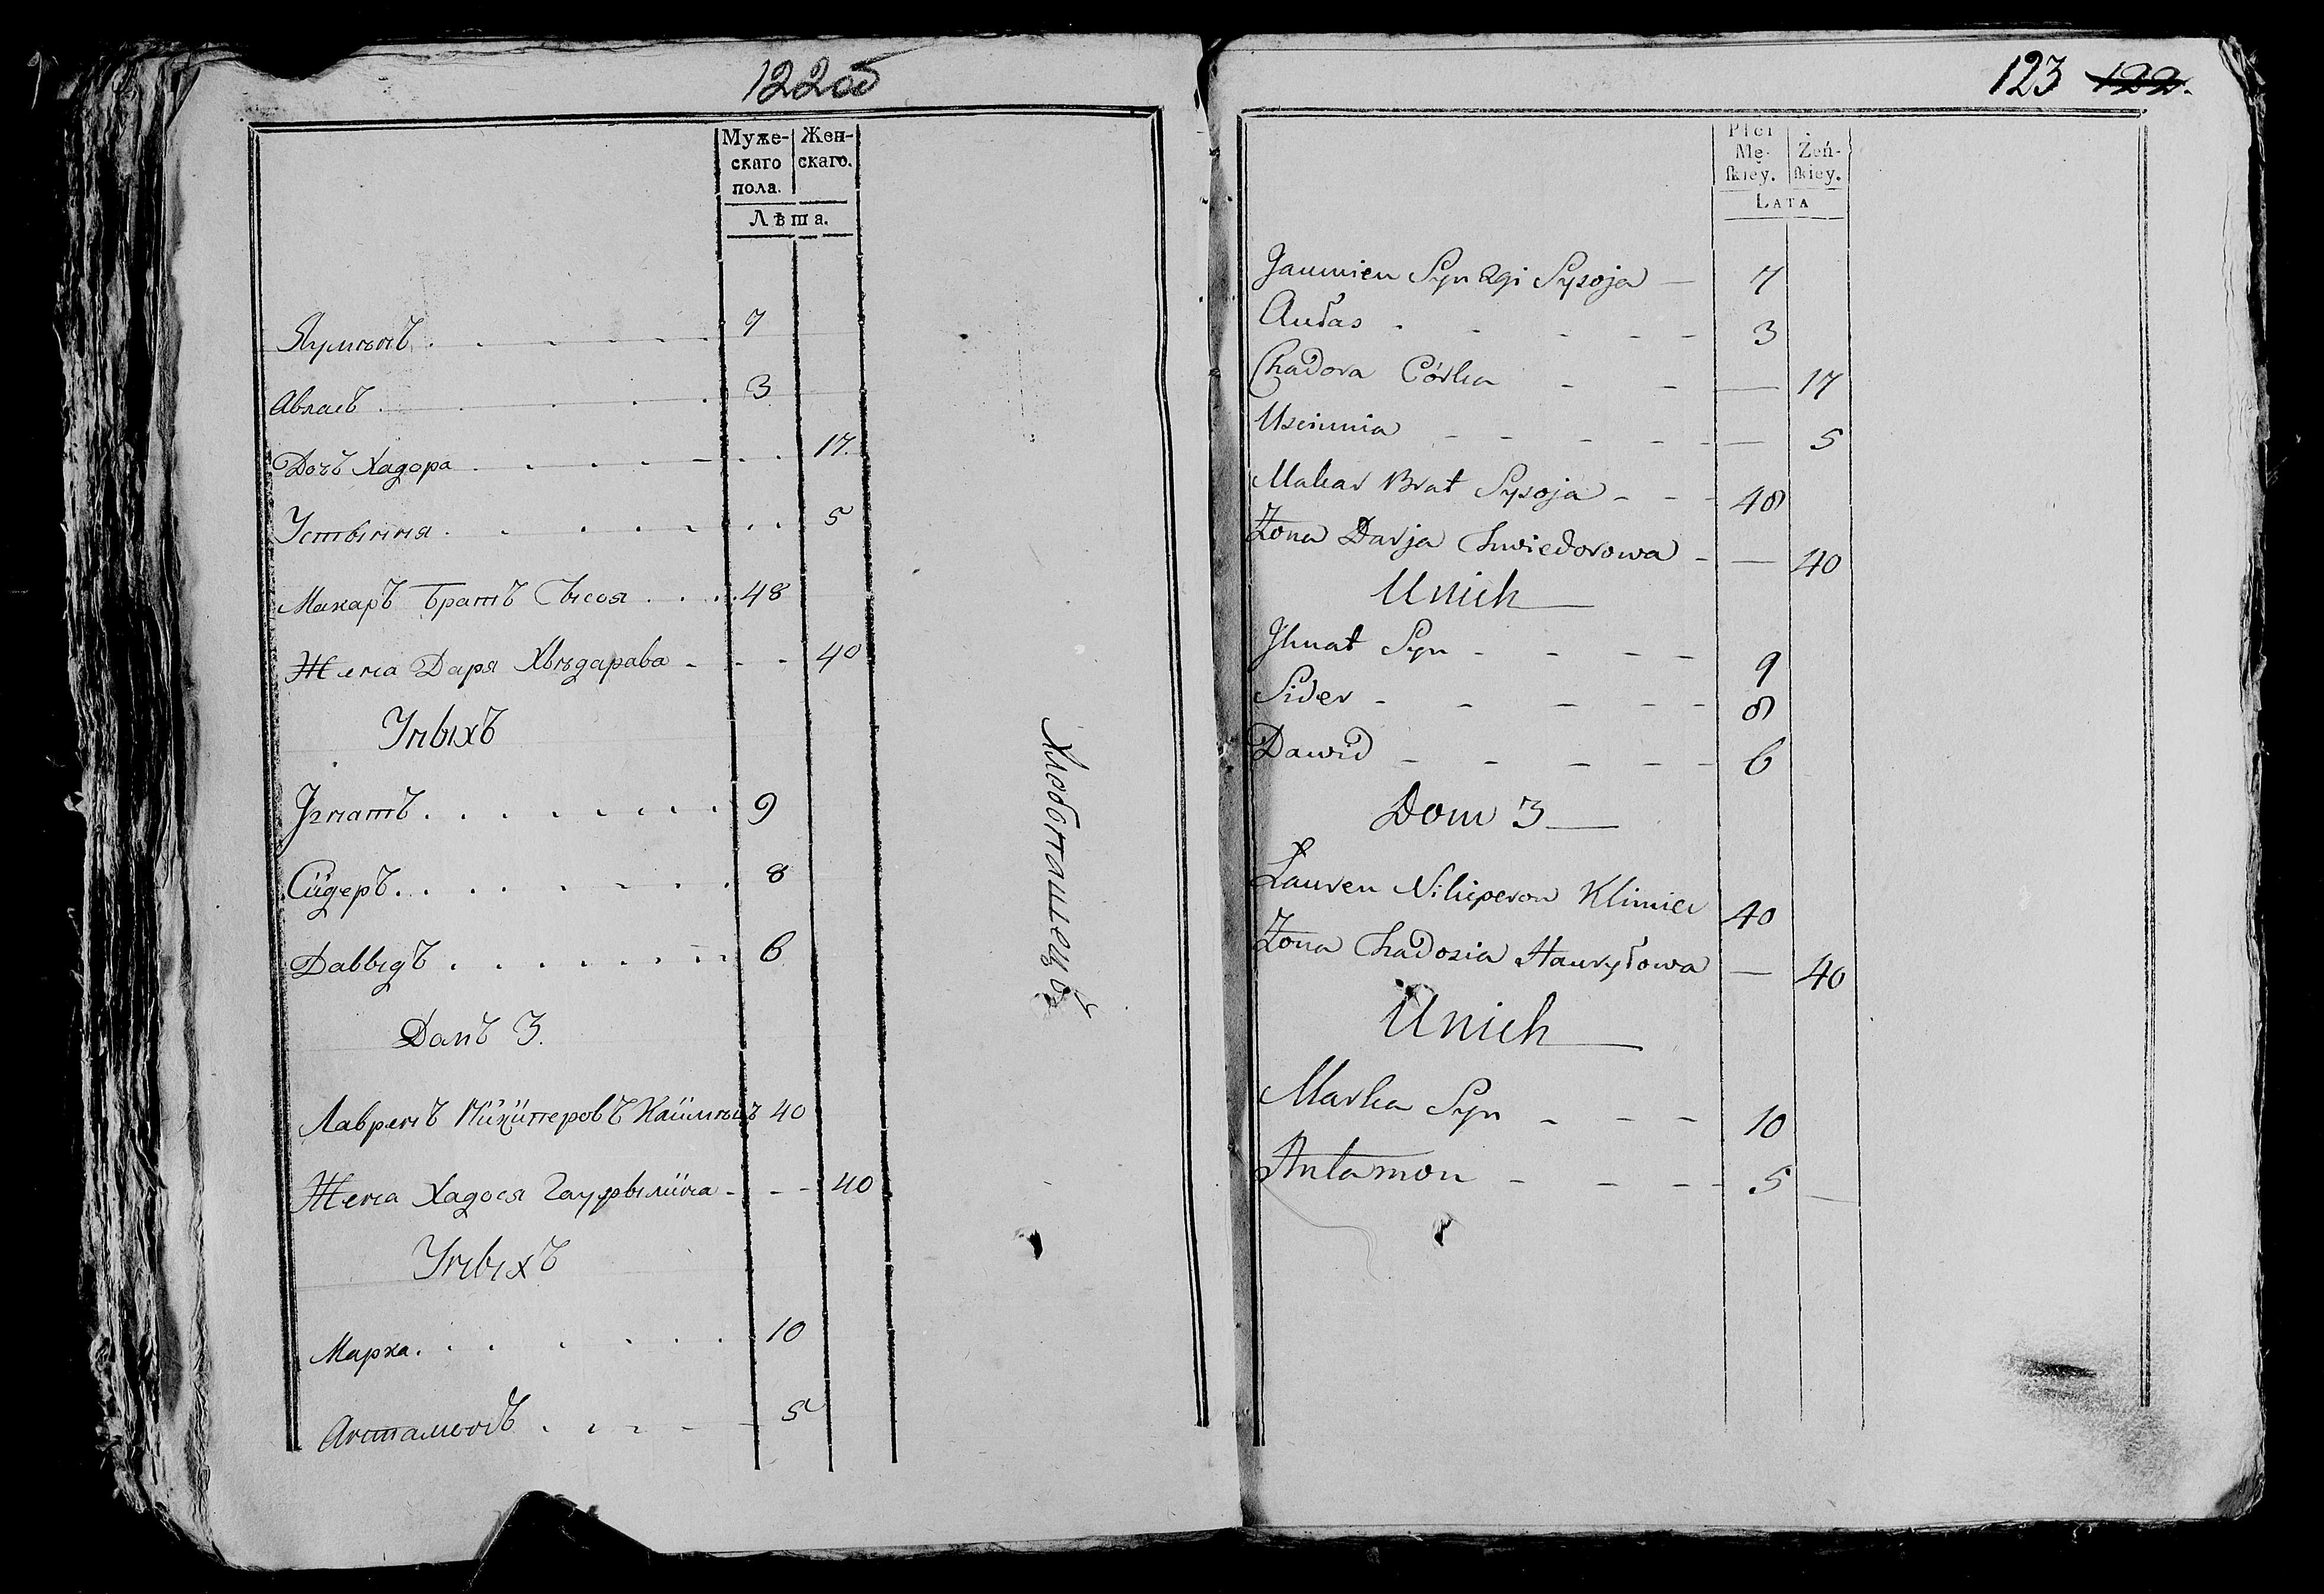 122об
Муже-
скаго
пола.
Жен-
скаго.
Лѣта.
Яумѣнъ 7
Авласъ 3
Дочъ Хадора 17.
Устыння 5
Макаръ Братъ Сысоя 48
Жена Даря Хвѣдарава 40
У ныхъ
Угнатъ 9
Сидеръ 8
Даввыдъ 6
Домъ 3.
Лавренъ 40
Жена Хадося Гаурылина 40
У ныхъ
Марка 10
Антамонъ 5
123 122.
Płci
Mę-
ſkiey.
Żeń-
ſkiey.
LATA
Jaumien Syn 2gi Sysoja 7
Aułas 3
Chadora Córka 17
Uscinnia 5
Makar Brat Sysoja 48
Żona Darja Chwiedorowa 40
U nich
Jhnat Syn 9
Sider 8
Dawid 6
Dom 3
Łauren Nikiperow 40
Żona Chadosia Hauryłowa 40
U nich
Marka Syn 10
Antamon 5